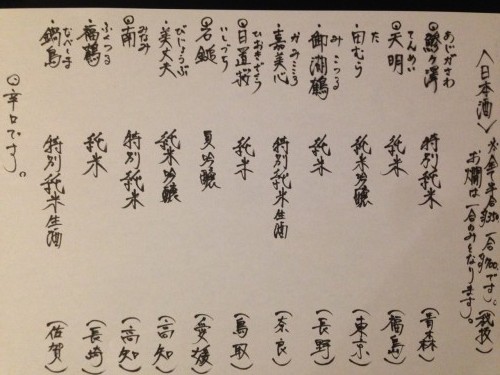 〈日本酒〉全て半合350 一合700です(税抜)
お燗は一合のみとなります。
あじがさわ
◎鯵ヶ澤 特別純米 (青森)
てんめい
◎天明 純米 (福島)
た
・田むら 純米吟醸 (東京)
みこつる
・御湖鶴 純米 (長野)
かみこころ
・嘉美心 特別純米生酒 (奈良)
ひおきざくら
◎日置桜 純米 (鳥取)
いしづち
◎石鎚 夏吟醸 (愛媛)
びじょうふ
・美丈夫 純米吟醸 (高知)
みなみ
◎南 特別純米 (高知)
ふくつる
・福鶴 純米 (長崎)
なべしま
・鍋島 特別純米生酒 (佐賀)
◎辛口です。